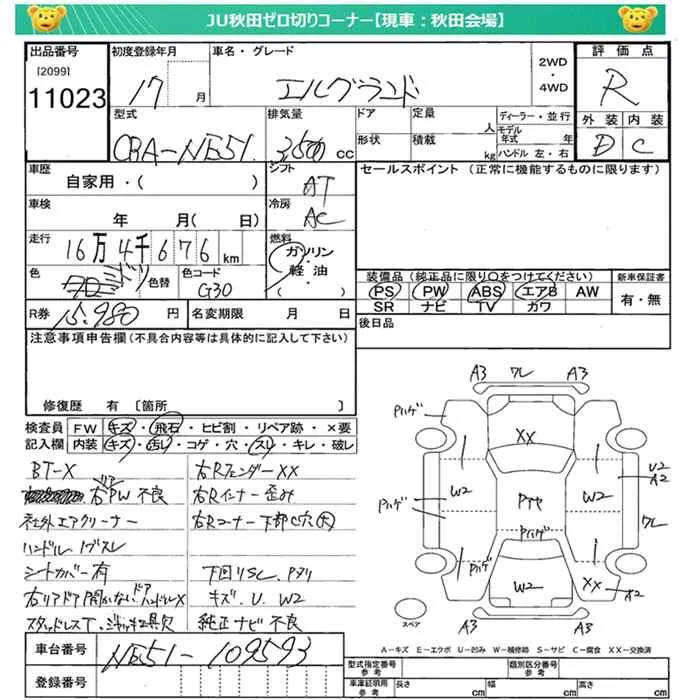 JU秋田ゼロ切りコーナー【現車:秋田会場】
出品番号
[2099]
11023
初度登録年月
17 月
車名・グレード
エルグランド
2WD
・
4WD
評価点
R
外装 内装
D C
型式
CBA-NE51
排気量
3500 cc
ドア
定員
人
ディーラー・並行
モデル年式 年
形状
積載
kg
ハンドル 左・右
車歴
自家用・( )
シフト
AT
セールスポイント (正常に機能するものに限ります)
車検
年 月( 日)
冷房
AC
走行
16万4千676km
燃料
ガソリン
軽油
( )
色
色替
色コード
G30
装備品(純正品に限り○をつけてください)
PS PW ABS エアB AW
SR ナビ TV カワ
新車保証書
有・無
R券
15,980 円
名変期限 月 日
後日品
注意事項申告欄(不具合等は具体的に記入して下さい)
修復歴 有 [箇所 ]
検査員記入欄
FW キズ・飛石・ヒビ割・リペア跡・×要
内装 キズ・汚れ・コゲ・穴・スレ・キレ・破レ
BT-X
右PW 不良
社外エアクリーナー
ハンドル
シートカバー有
右リアドア開かない ドアハンドルX
スタッドレスT、ジャッキ工具欠
右Rフェンダー XX
右Rインナー 歪み
右Rコーナー下部C穴(大)
下回りSC、Pタリ
キズ、U、W2
純正ナビ不良
A3 ワレ A3
Pハゲ
XX
W2
Pハゲ
W2
U2
A2
ワレ
Pハゲ
Pハゲ
W2
XX
A2
A3 A3
スペア
A-キズ E-エクボ U-凹み W-補修跡 S-サビ C-腐食 XX-交換済
車台番号
NE51-109593
登録番号
型式指定番号
参考
類別区分番号
参考
車庫証明用
参考
長さ cm
幅 cm
高さ cm